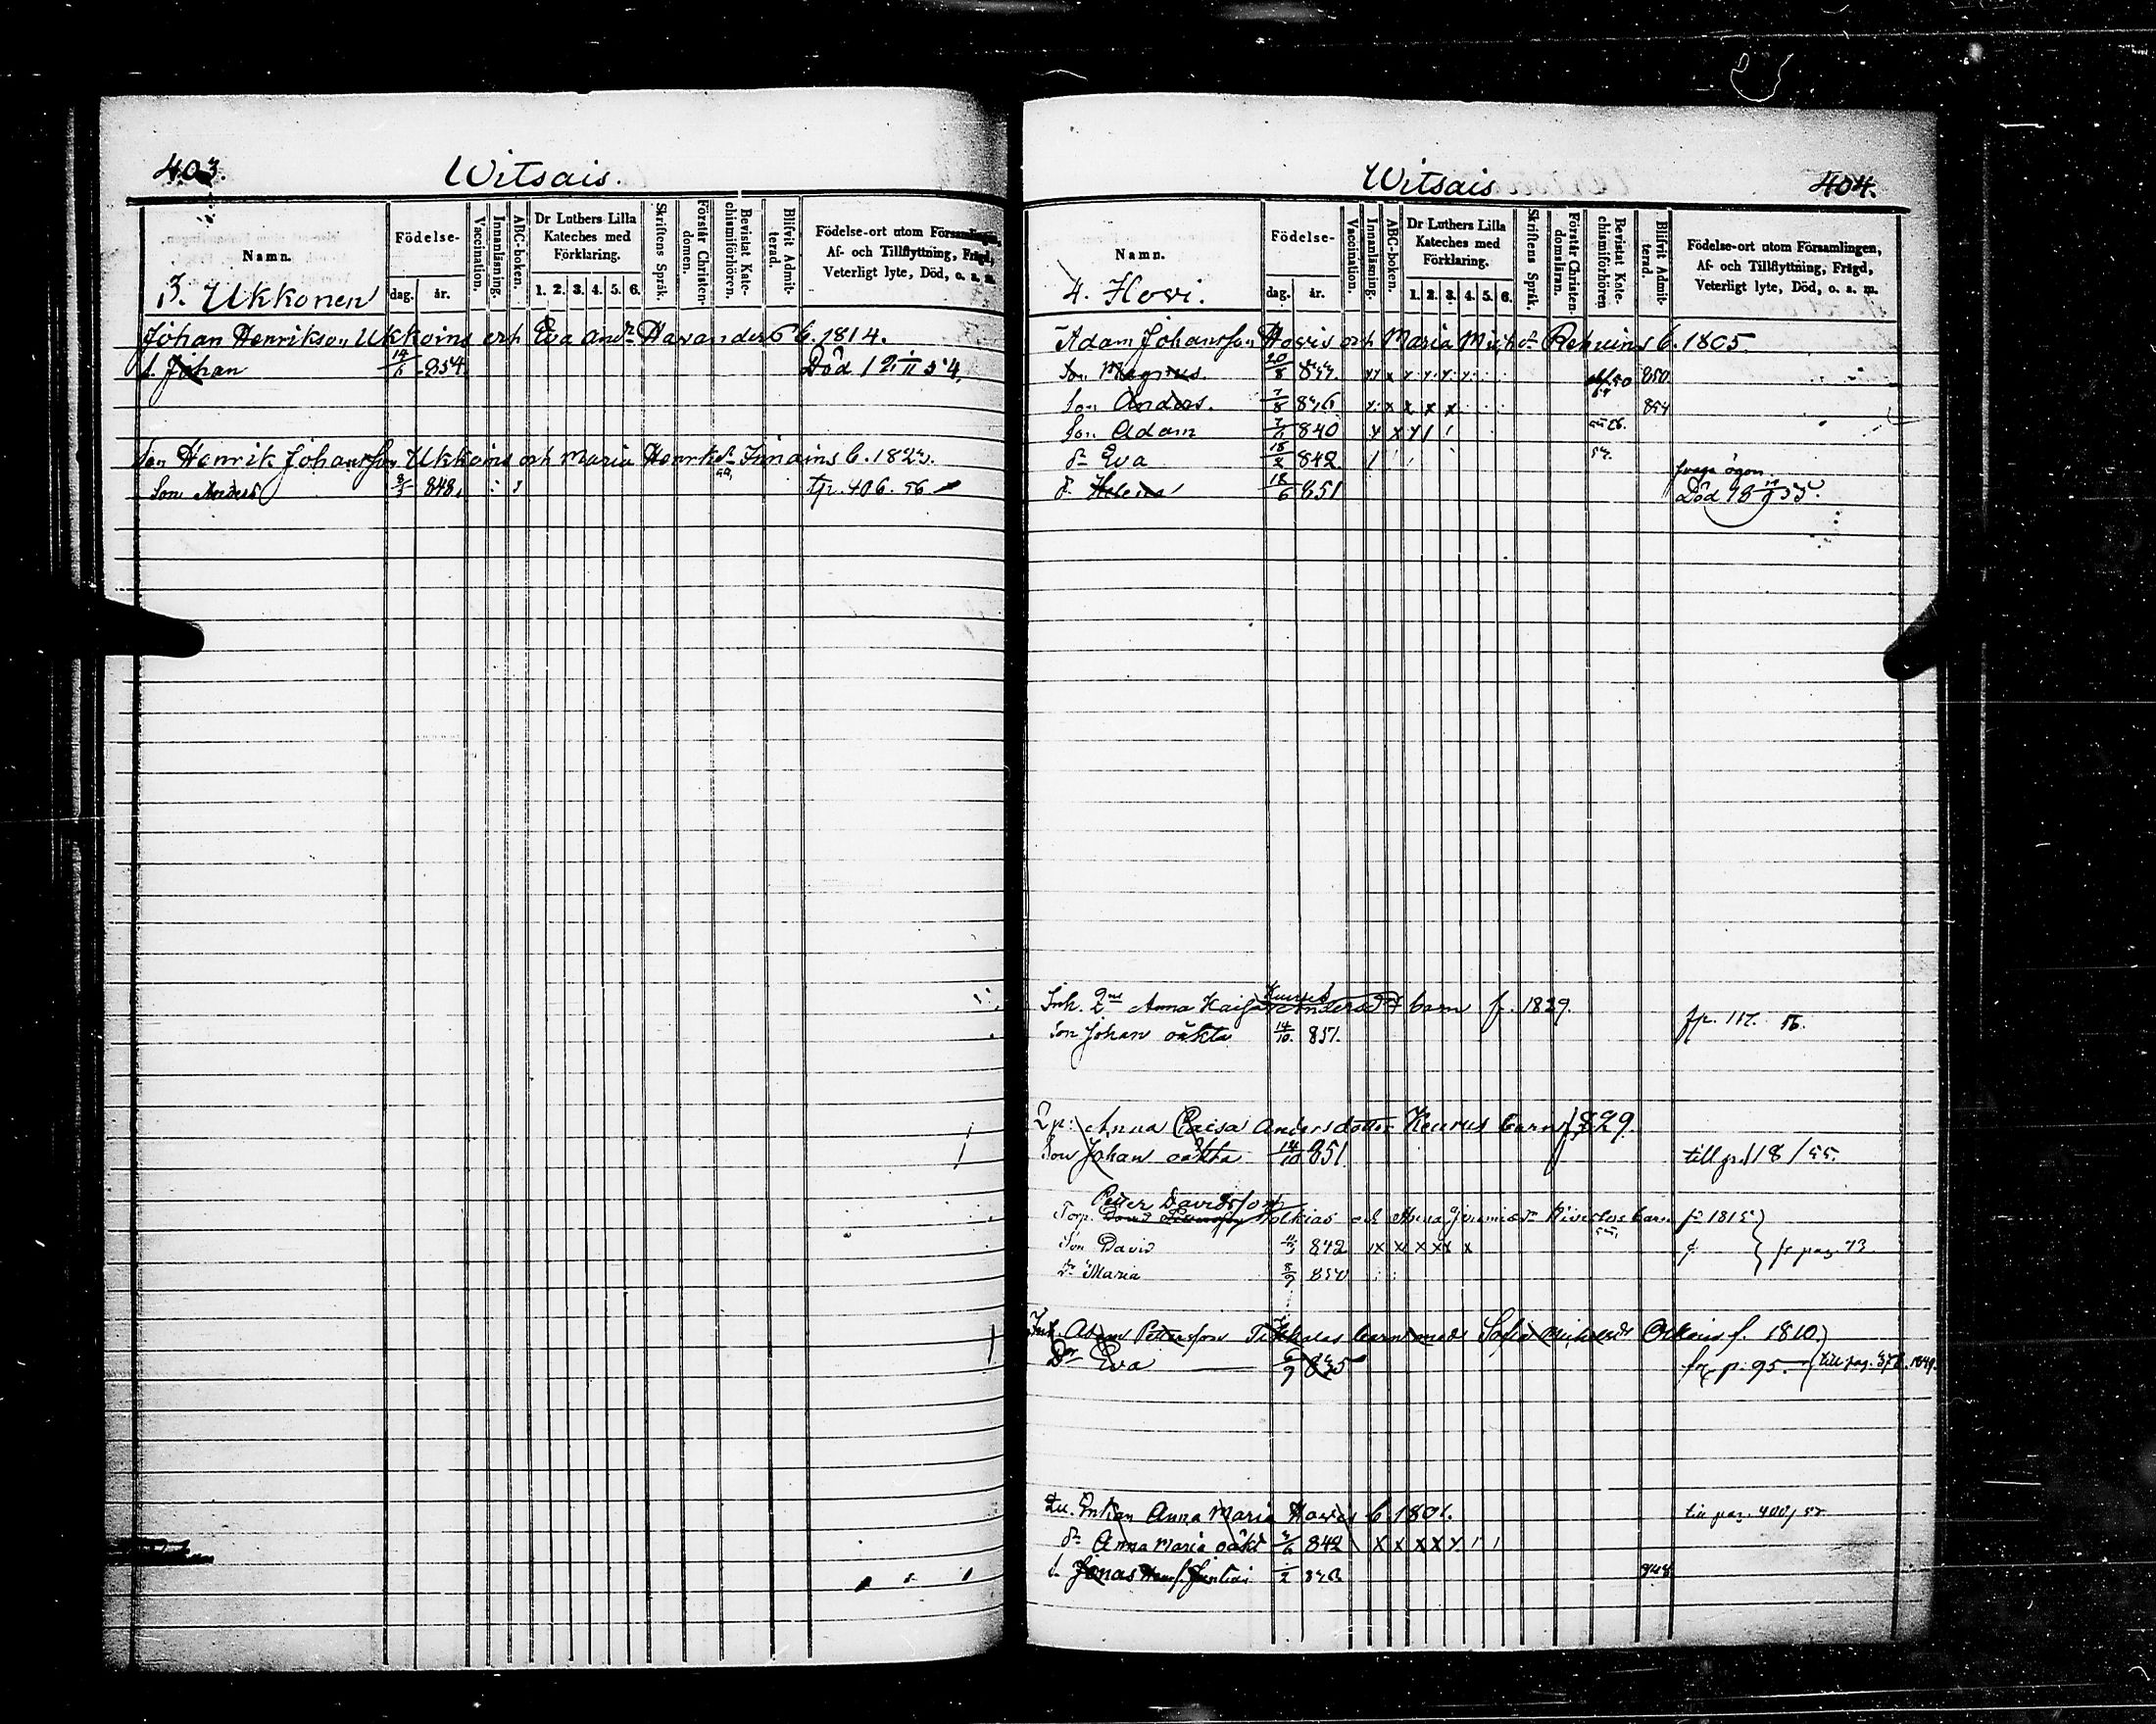 403.
Witsais.
Namn.
Födelse-
dag. år.
Vaccination.
Innanläsning.
ABC-boken.
Dr Luthers Lilla
Kateches med
Förklaring.
1. 2. 3. 4. 5. 6.
Skriftens Språk.
Förstår Christen-
domen.
Bevistat Kate-
chismiförhören.
Blifvit Admit-
terad.
Födelse-ort utom Församlingen,
Af- och Tillflyttning, Frägd,
Veterligt lyte, Död, o. s. m.
3. Ukkonen
Johan Henrikson Ukkoins och Eva And:r Havander b. 1814.
s. Johan 14/6 854. Död 12/11 54.
Son Henrik Johansson Ukkoins och Maria Henriksdr Innains b. 1823.
Son Anders 848. tfr. 406. 56
Witsais
404.
Namn.
Födelse-
dag. år.
Vaccination.
Innanläsning.
ABC-boken.
Dr Luthers Lilla
Kateches med
Förklaring.
1. 2. 3. 4. 5. 6.
Skriftens Språk.
Förstår Christen-
domsläran.
Bevistat Kate-
chismiförhören
Blifvit Admit-
terad.
Födelse-ort utom Församlingen,
Af- och Tillflyttning, Frägd,
Veterligt lyte, Död, o. s. m.
4. Hovi.
Adam Johansson Hovis och Maria Mich:dr Rehuins b. 1805.
Son Magnus 20/8 x x x x x x 850
Son Anders. 7/8 836 x x x x x 854
Son Adam 840 x x x / /
dr Eva 18/2 842 / svaga ögon.
dr Helena 18/6 851 Död 18 55.
Inh. Anna Kaisa Andersdr barn f. 1829. fr. 117. 56.
Son Johan oäkta 14/10. 851.
Anna Caisa Andersdotter Keurus barn f. 829.
Son Johan oäkta 14/10 851 till pd 18/55.
Petter Davidsson
Torp. Tolkias och Anna barn f. 1815
Son David 842 x x x x x x fr pag. 73
dr Maria 8/9 850
Inh. Adam Pettersson Tikkalas barn med Sofia Michelsdr f. 1810.
Dr Eva 6/9 835 fr p. 95. till pag. 378. 1849.
Enkan Anna Maria Havis b. 1801. till pag. 400/
dr Anna Maria oäkt 3/6 842 x x x x x / /
s. Jonas 848